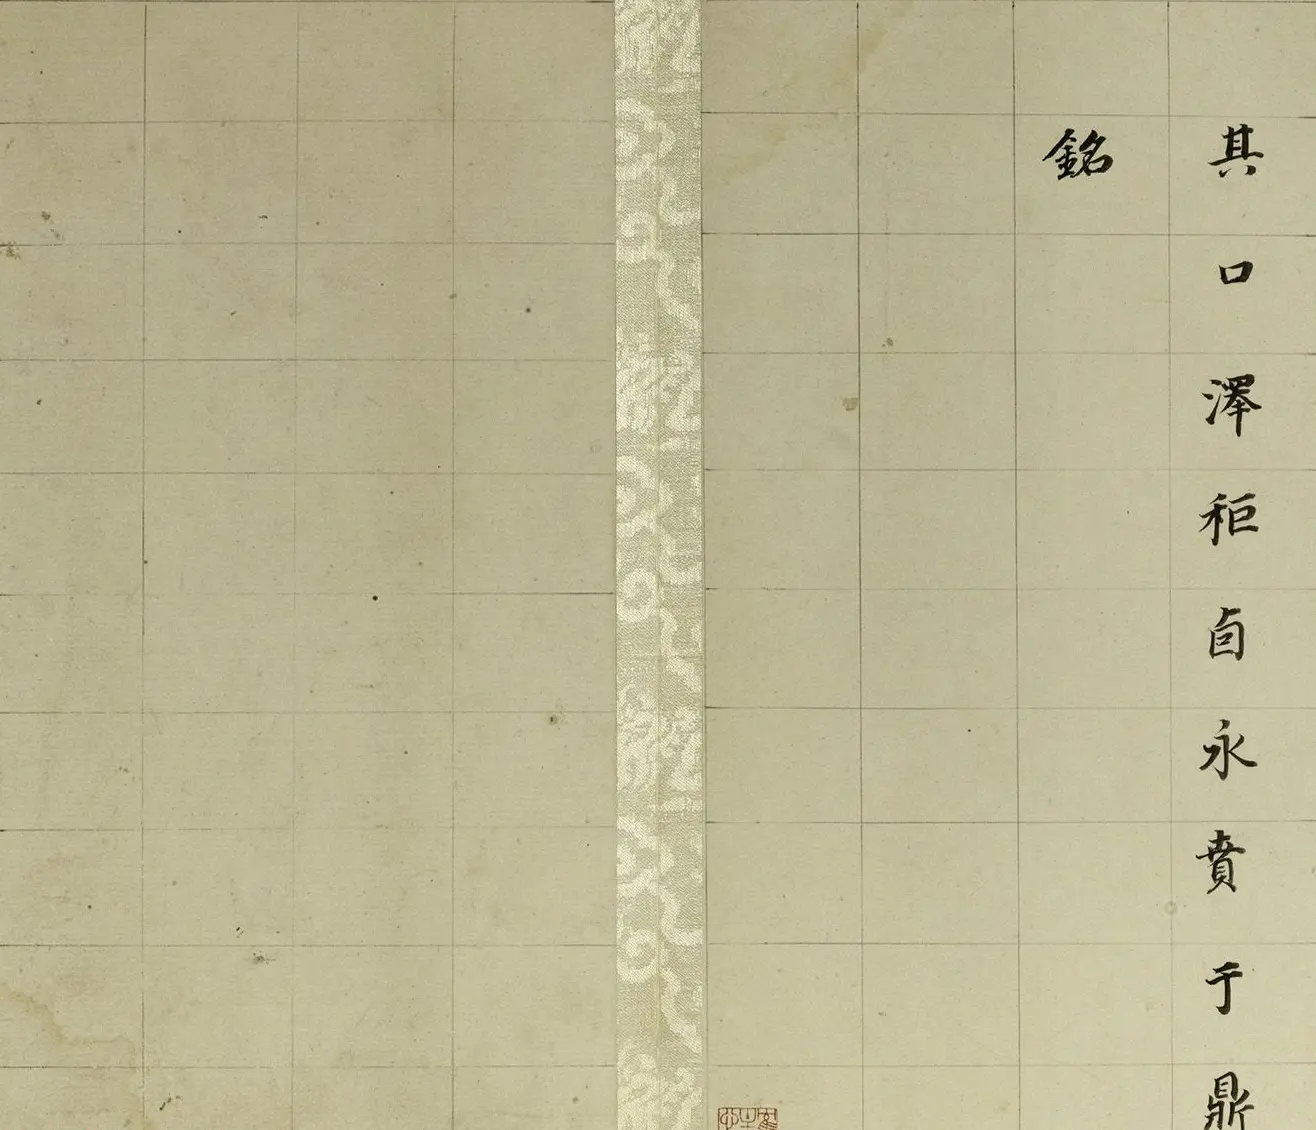 其口澤秬卣永賁于鼎
銘